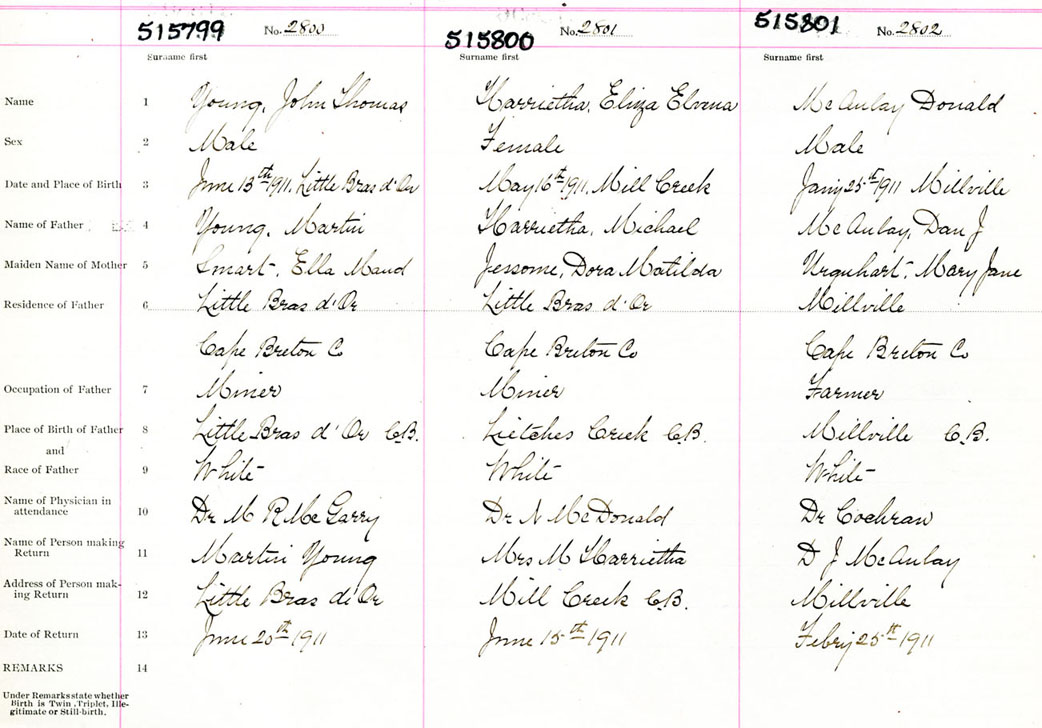 515799 No. 2800 515800 No. 2801 515801 No. 2802
Surname first Surname first Surname first
Name 1 Young, John Thomas Harrietha, Eliza Elvena McAulay Donald
Sex 2 Male Female Male
Date and Place of Birth 3 June 13th 1911, Little Bras d'Or May 16th 1911, Mill Creek Jany 25th 1911 Millville
Name of Father 4 Young, Martin Harrietha, Michael McAulay, Dan J
Maiden Name of Mother 5 Smart, Ella Maud Jessome, Dora Matilda Urquhart, Mary Jane
Residence of Father 6 Little Bras d'Or Little Bras d'Or Millville
Cape Breton Co Cape Breton Co Cape Breton Co
Occupation of Father 7 Miner Miner Farmer
Place of Birth of Father 8 Little Bras d'Or C.B. Lietches Creek C.B. Millville C.B.
and
Race of Father 9 White White White
Name of Physician in
attendance 10 Dr M R McGarry Dr N McDonald Dr Cochran
Name of Person making
Return 11 Martin Young Mrs M Harrietha D J McAulay
Address of Person mak-
ing Return 12 Little Bras d'Or Mill Creek C.B. Millville
Date of Return 13 June 20th 1911 June 15th 1911 Febry 25th 1911
REMARKS 14
Under Remarks state whether
Birth is Twin, Triplet, Ille-
gitimate or Still-birth.